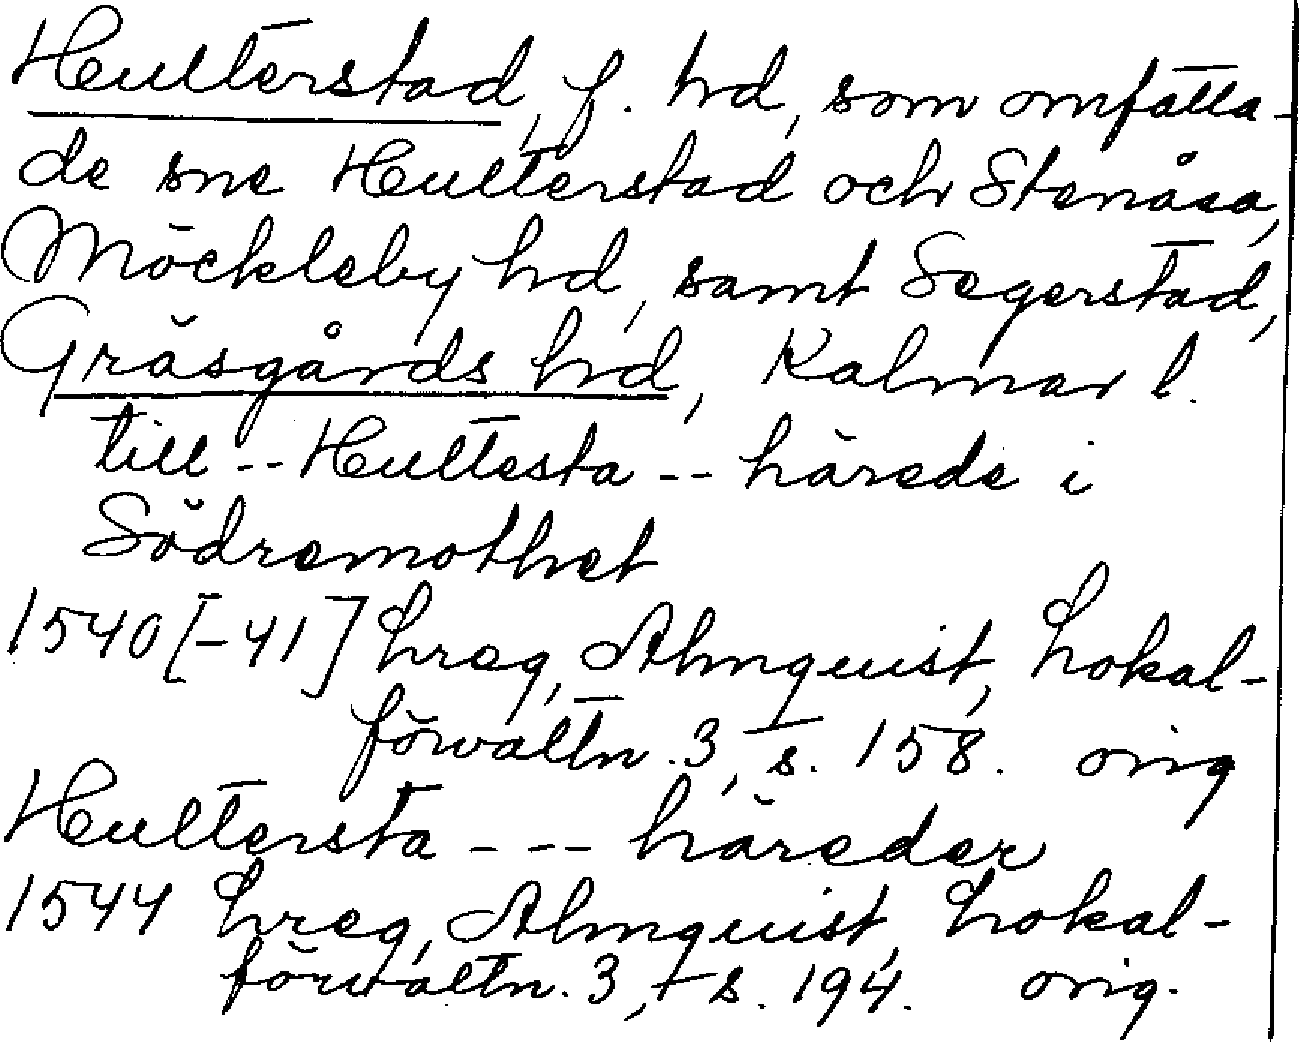 Hulterstad, f. hd, som omfatta-
de sne Hulterstad och Stenåsa,
Möckleby hd, samt Segerstad,
Gräsgårds hd, Kalmar l.
till -- Hultesta -- härede i
Södremothet
1540[-41] hreg, Almquist, Lokal-
förvaltn. 3, s. 158. orig
Hultersta --- häreder
1544 hreg, Almquist, Lokal-
förvaltn. 3, s. 194. orig.